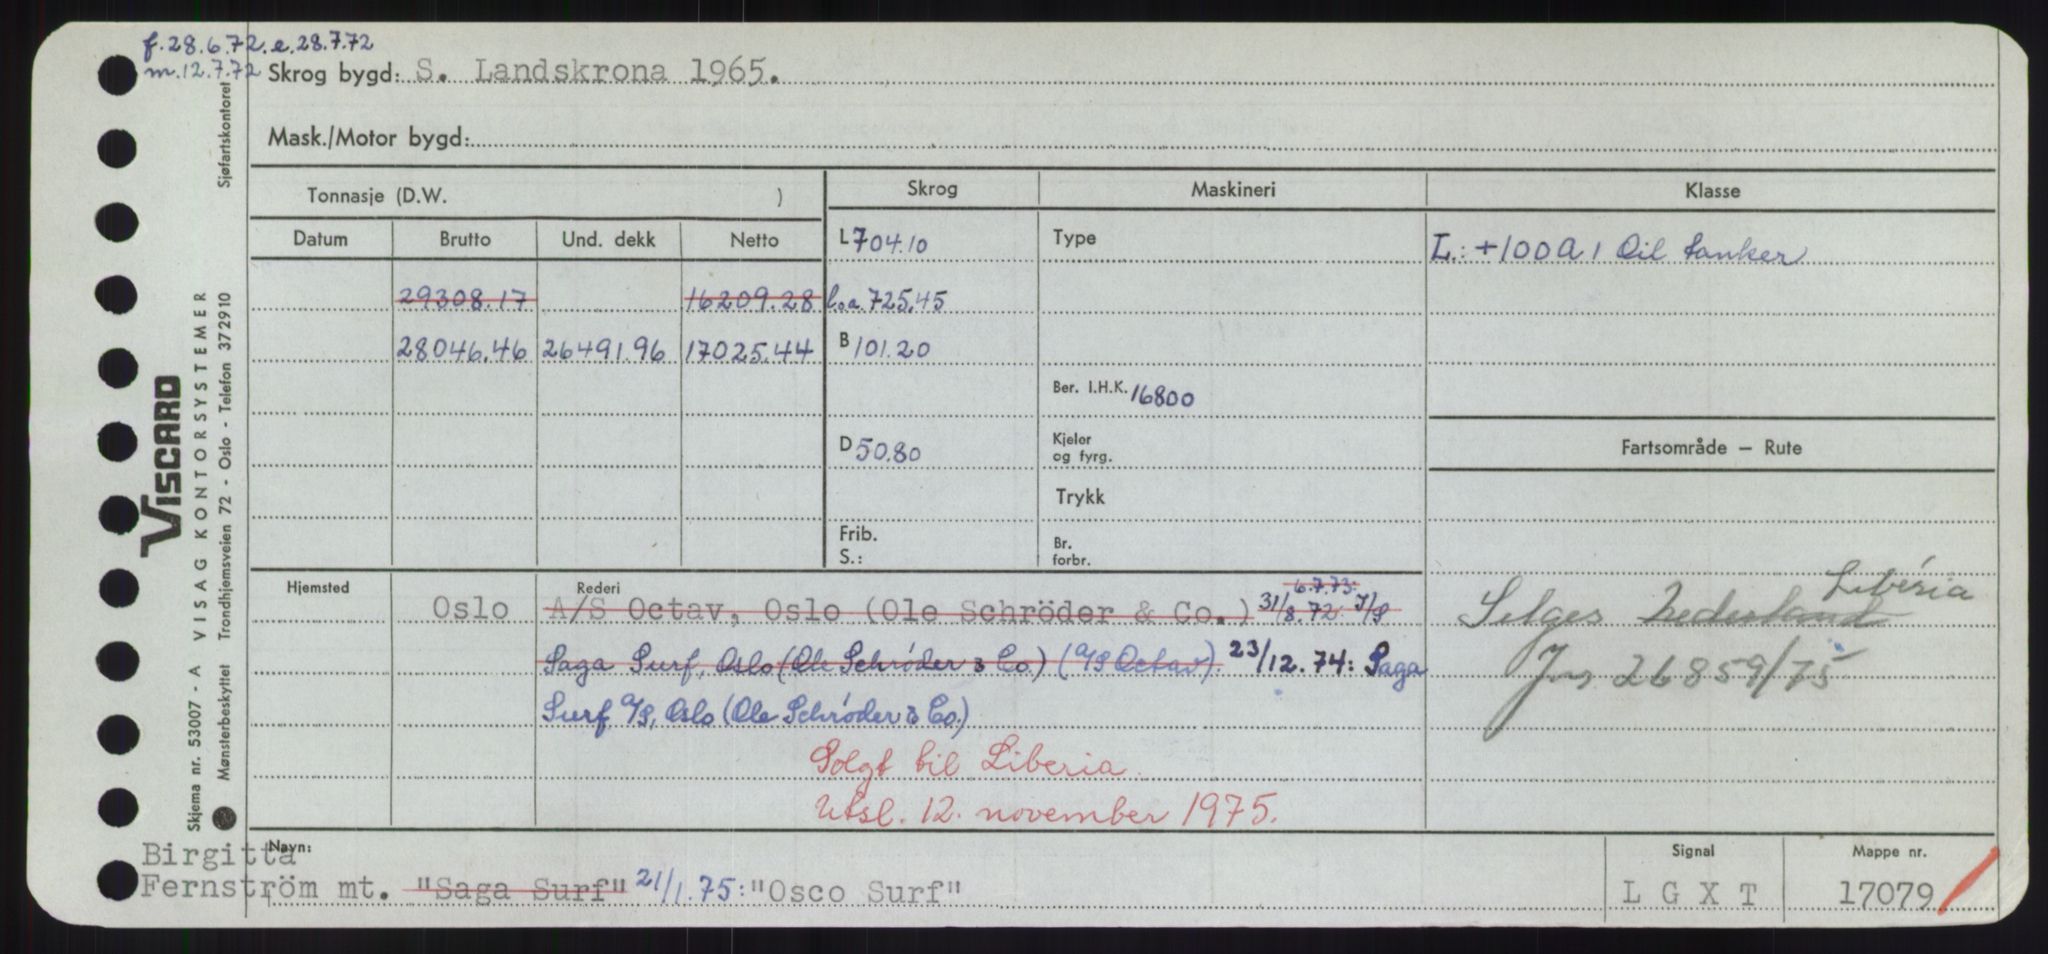 f. 28.6.72. e. 28.7.72
m. 12.7.72
Skrog bygd: S. Landskrona 1965.
Mask./Motor bygd:
Tonnasje (D.W. )
Skrog
Maskineri
Klasse
Datum
Brutto
Und. dekk
Netto
L 704.10
Type
L.: +100A1 Oil tanker
29308.17
16209.28
l.o.a. 725.45
28046.46
26491.96
17025.44
B 101.20
Ber. I.H.K. 16800
D 50.80
Kjeler
og fyrg.
Fartsområde — Rute
Trykk
Frib.
S.:
Br.
forbr.
Hjemsted
Rederi
6.7.73:
Oslo
A/S Octav, Oslo (Ole Schröder & Co.) 31/8.72: I/S
Saga Surf, Oslo (Ole Schröder & Co.) (A/S Octav). 23/12.74: Saga
Surf A/S, Oslo (Ole Schröder & Co.)
Solgt til Liberia.
Utsl. 12. november 1975.
Liberia
Selges Nederland
Jnr 26859/75
Navn:
Birgitta
Fernström mt. "Saga Surf" 21/1.75: "Osco Surf"
Signal
LGXT
Mappe nr.
17079
Sjøfartskontoret
VISCARD
Skjema nr. 53007 - A VISAG KONTORSYSTEMER
Mønsterbeskyttet Trondhjemsveien 72 - Oslo - Telefon 372910